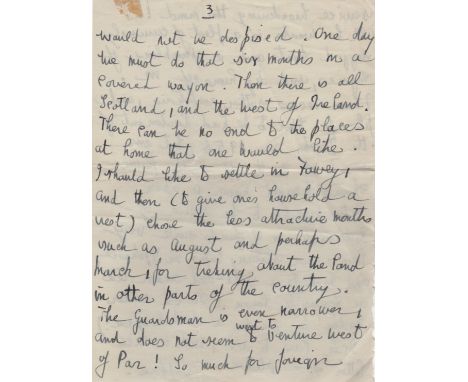 3
would not be despised. One day
we must do that six months in a
covered wagon. Then there is all
Scotland, and the west of Ireland.
There can be no end to the places
at home that one would like.
I should like to settle in Fowey,
and then (to give one's household a
rest) chose the less attractive months
such as August and perhaps
March, for treking about the land
in other parts of the country.
The Guardsman is even narrower,
and does not seem to want to venture west
of Par! So much for foreign